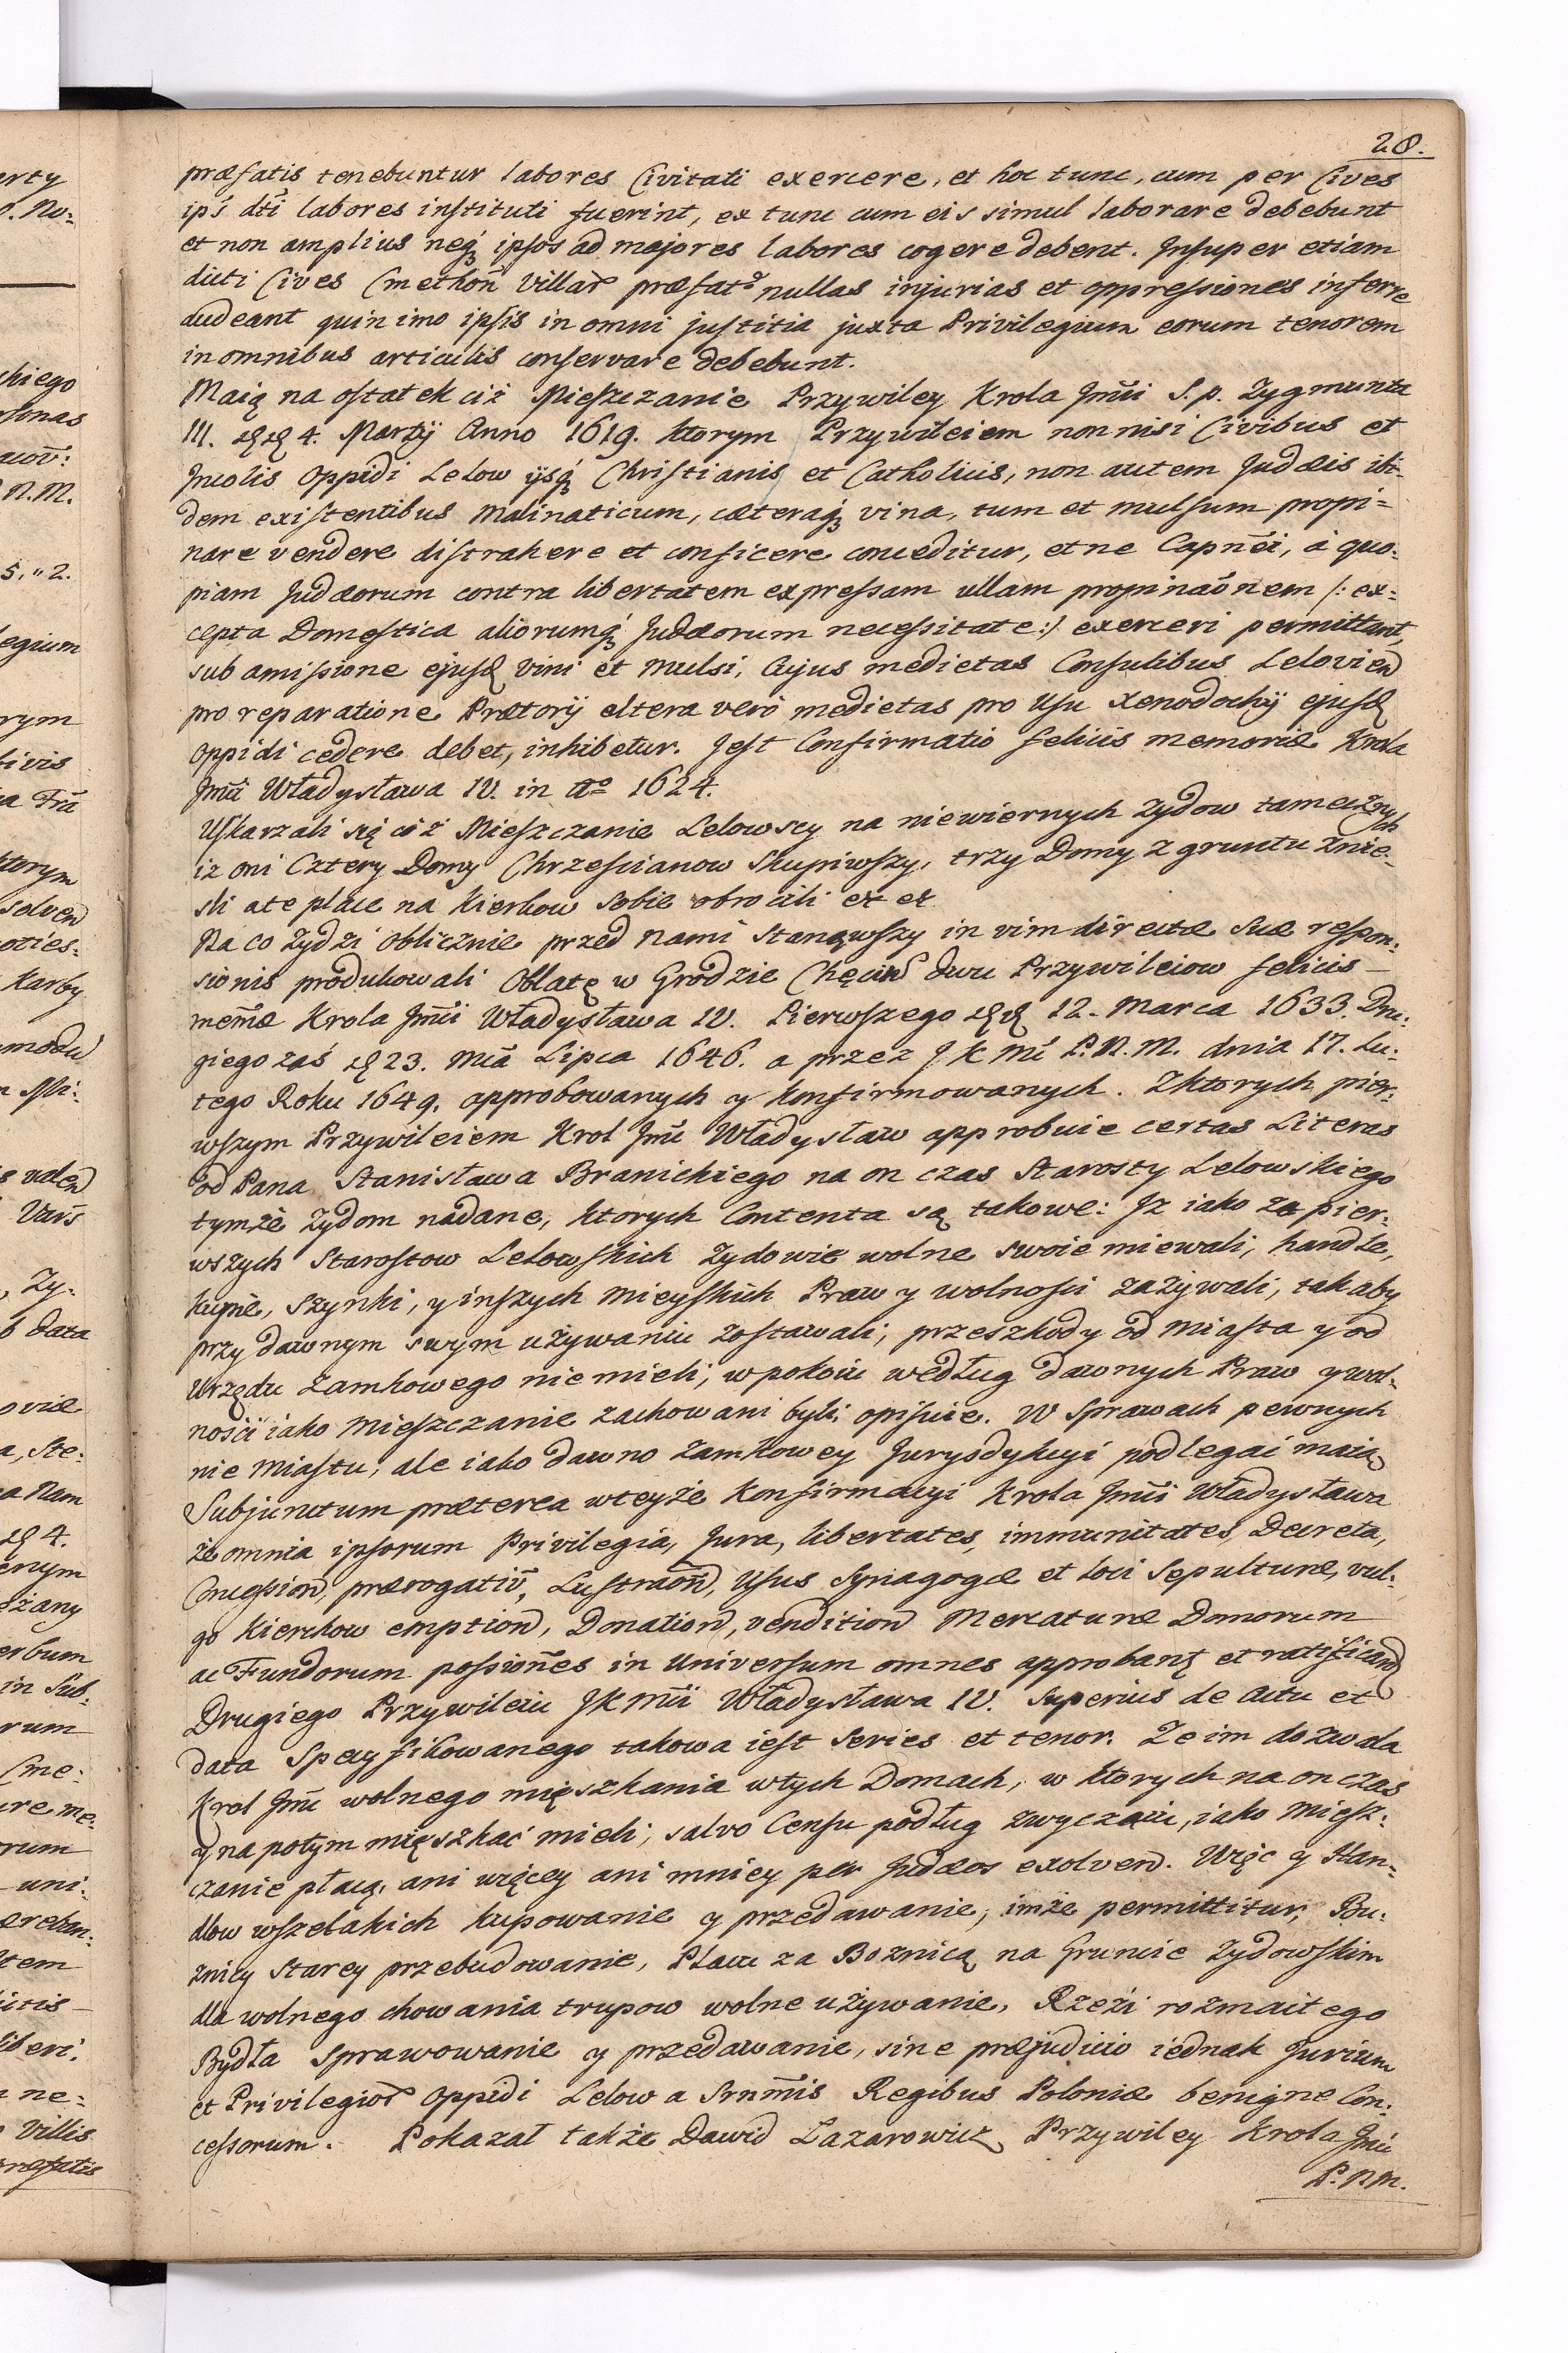 28.
præfatis tenebuntur labores Civitati exercere, et hoc tunc, cum per Cives
ips̃ dti labores instituti fuerint, ex tunc cum eis simul laborare debebunt
et non amplius neq́ȝ ipsos ad majores labores cogere debent. Insuper etiam
dicti Cives Cmethoñ Villar præfat̃ nullas injurias et oppressiones inferre
audeant quinimo ipsis in omni justitia juxta Privilegium eorum tenorem
in omnibus articulis conservare debebunt.
Maią na ostatek ciż Mieszczanie Przywiley Krola Jm̃ci S. p. Zygmunta
III. dd 4. Martij Anno 1619. ktorym Przywileiem nonnisi Civibus et
Incolis Oppidi Lelow ijsq́ȝ Christianis et Catholicis, non autem Judæis ibi-
dem existentibus Malinaticum, cæteraq́ȝ vina, tum et mulsum propi=
nare vendere distrahere et conficere conceditur, et ne Capñei, á quo-
piam Judæorum contra libertatem expressam ullam propinaõnem /: ex=
cepta Domestica aliorumq́ȝ Judæorum necessitate :/ exerceri permittant,
sub amissione ejusd vini et mulsi, Cujus medietas Consulibus Lelovien
pro reparatione Prætorij altera veró medietas pro Usu Xenodochij ejusd
Oppidi cedere debet, inhibetur. Jest Confirmatio felicis memoriæ Krola
Jm̃ci Władysława IV. in Ao 1624.
Uskarzali się ciż Mieszczanie Lelowscy na niewiernych Zydow tamecżnych
iż oni Cztery Domy Chrzescianow skupiwszy, trzy Domy z gruntu znie-
sli a te place na Kierkow sobie obrocili et et
Na co Zydzi oblicznie przed nami stanąwszy in vim directæ suæ respon-
sionis produkowali Oblatę w Grodzie Chęcin dwu Przywileiow felicis
mem̃æ Krola Jm̃ci Władysława IV. Pierwszego dd 12. Marca 1633. Dru-
giego zaś d 23. Mca Lipca 1646. a przez J K Mć P. N. M. dnia 17. Lu-
tego Roku 1649. approbowanych y konfirmowanych. Z ktorych pier-
wszym Przywileiem Krol Jm̃c Władysław approbuie certas Literas
od Pana Stanisława Branickiego na on czas Starosty Lelowskiego
tymże Zydom nadane, ktorych Contenta są takowe: Iz iako za pier-
wszych Starostow Lelowskich Zydowie wolne swoie miewali, handle,
kupie, szynki, y inszych mieyskich Praw y wolnosci zażywali, tak aby
przy dawnym swym używaniu zostawali; przeszkody od Miasta y od
Urzędu Zamkowego nie mieli; w pokoiu według dawnych Praw y wol-
ności iako Mieszczanie zachowani byli, opisuie. W Sprawach pewnych
nie Miastu, ale iako dawno Zamkowey Jurysdykcyi podlegać maią
Subjunctum præterea w teyże Konfirmacyi Krola Jm̃ci Władysława
że omnia ipsorum Privilegia, Jura, libertates, immunitates, Decreta,
Concession, prærogativ̄, Lustraõn, Usus Synagogæ et loci Sepulturæ, vul-
go Kierchow emption, Donation, vendition Mercaturæ Domorum
ac Fundorum possioñes in Universum omnes approbant et ratificand
Drugiego Przywileiu JKMci Władysława IV. Superius de Actu et
data Specyfikowanego takowa iest Series et tenor. Ze im dozwala
Krol Jm̃c wolnego mięszkania w tych Domach, w ktorych na on czas
y na potym mięszkać mieli, salvo Censu podług zwyczaiu, iako miesz-
czanie płacą, ani więcey ani mniey per Judæos exolven. Więc y Han-
dlow wszelakich kupowanie y przedawanie, imże permittitur, Bu-
żnicy Starey przebudowanie, Placu za Boznicą na Gruncie Zydowskim
dla wolnego chowania trupow wolne używanie, Rzeżi rozmaitego
Bydła Sprawowanie y przedawanie, sine præjudicio iednak Jurium
et Privilegior Oppidi Lelow a Srn̄mis Regibus Poloniæ benigne Con-
cessorum. Pokazał także Dawid Lazarowicz Przywiley Krola Jm̃ci
P. N. M.